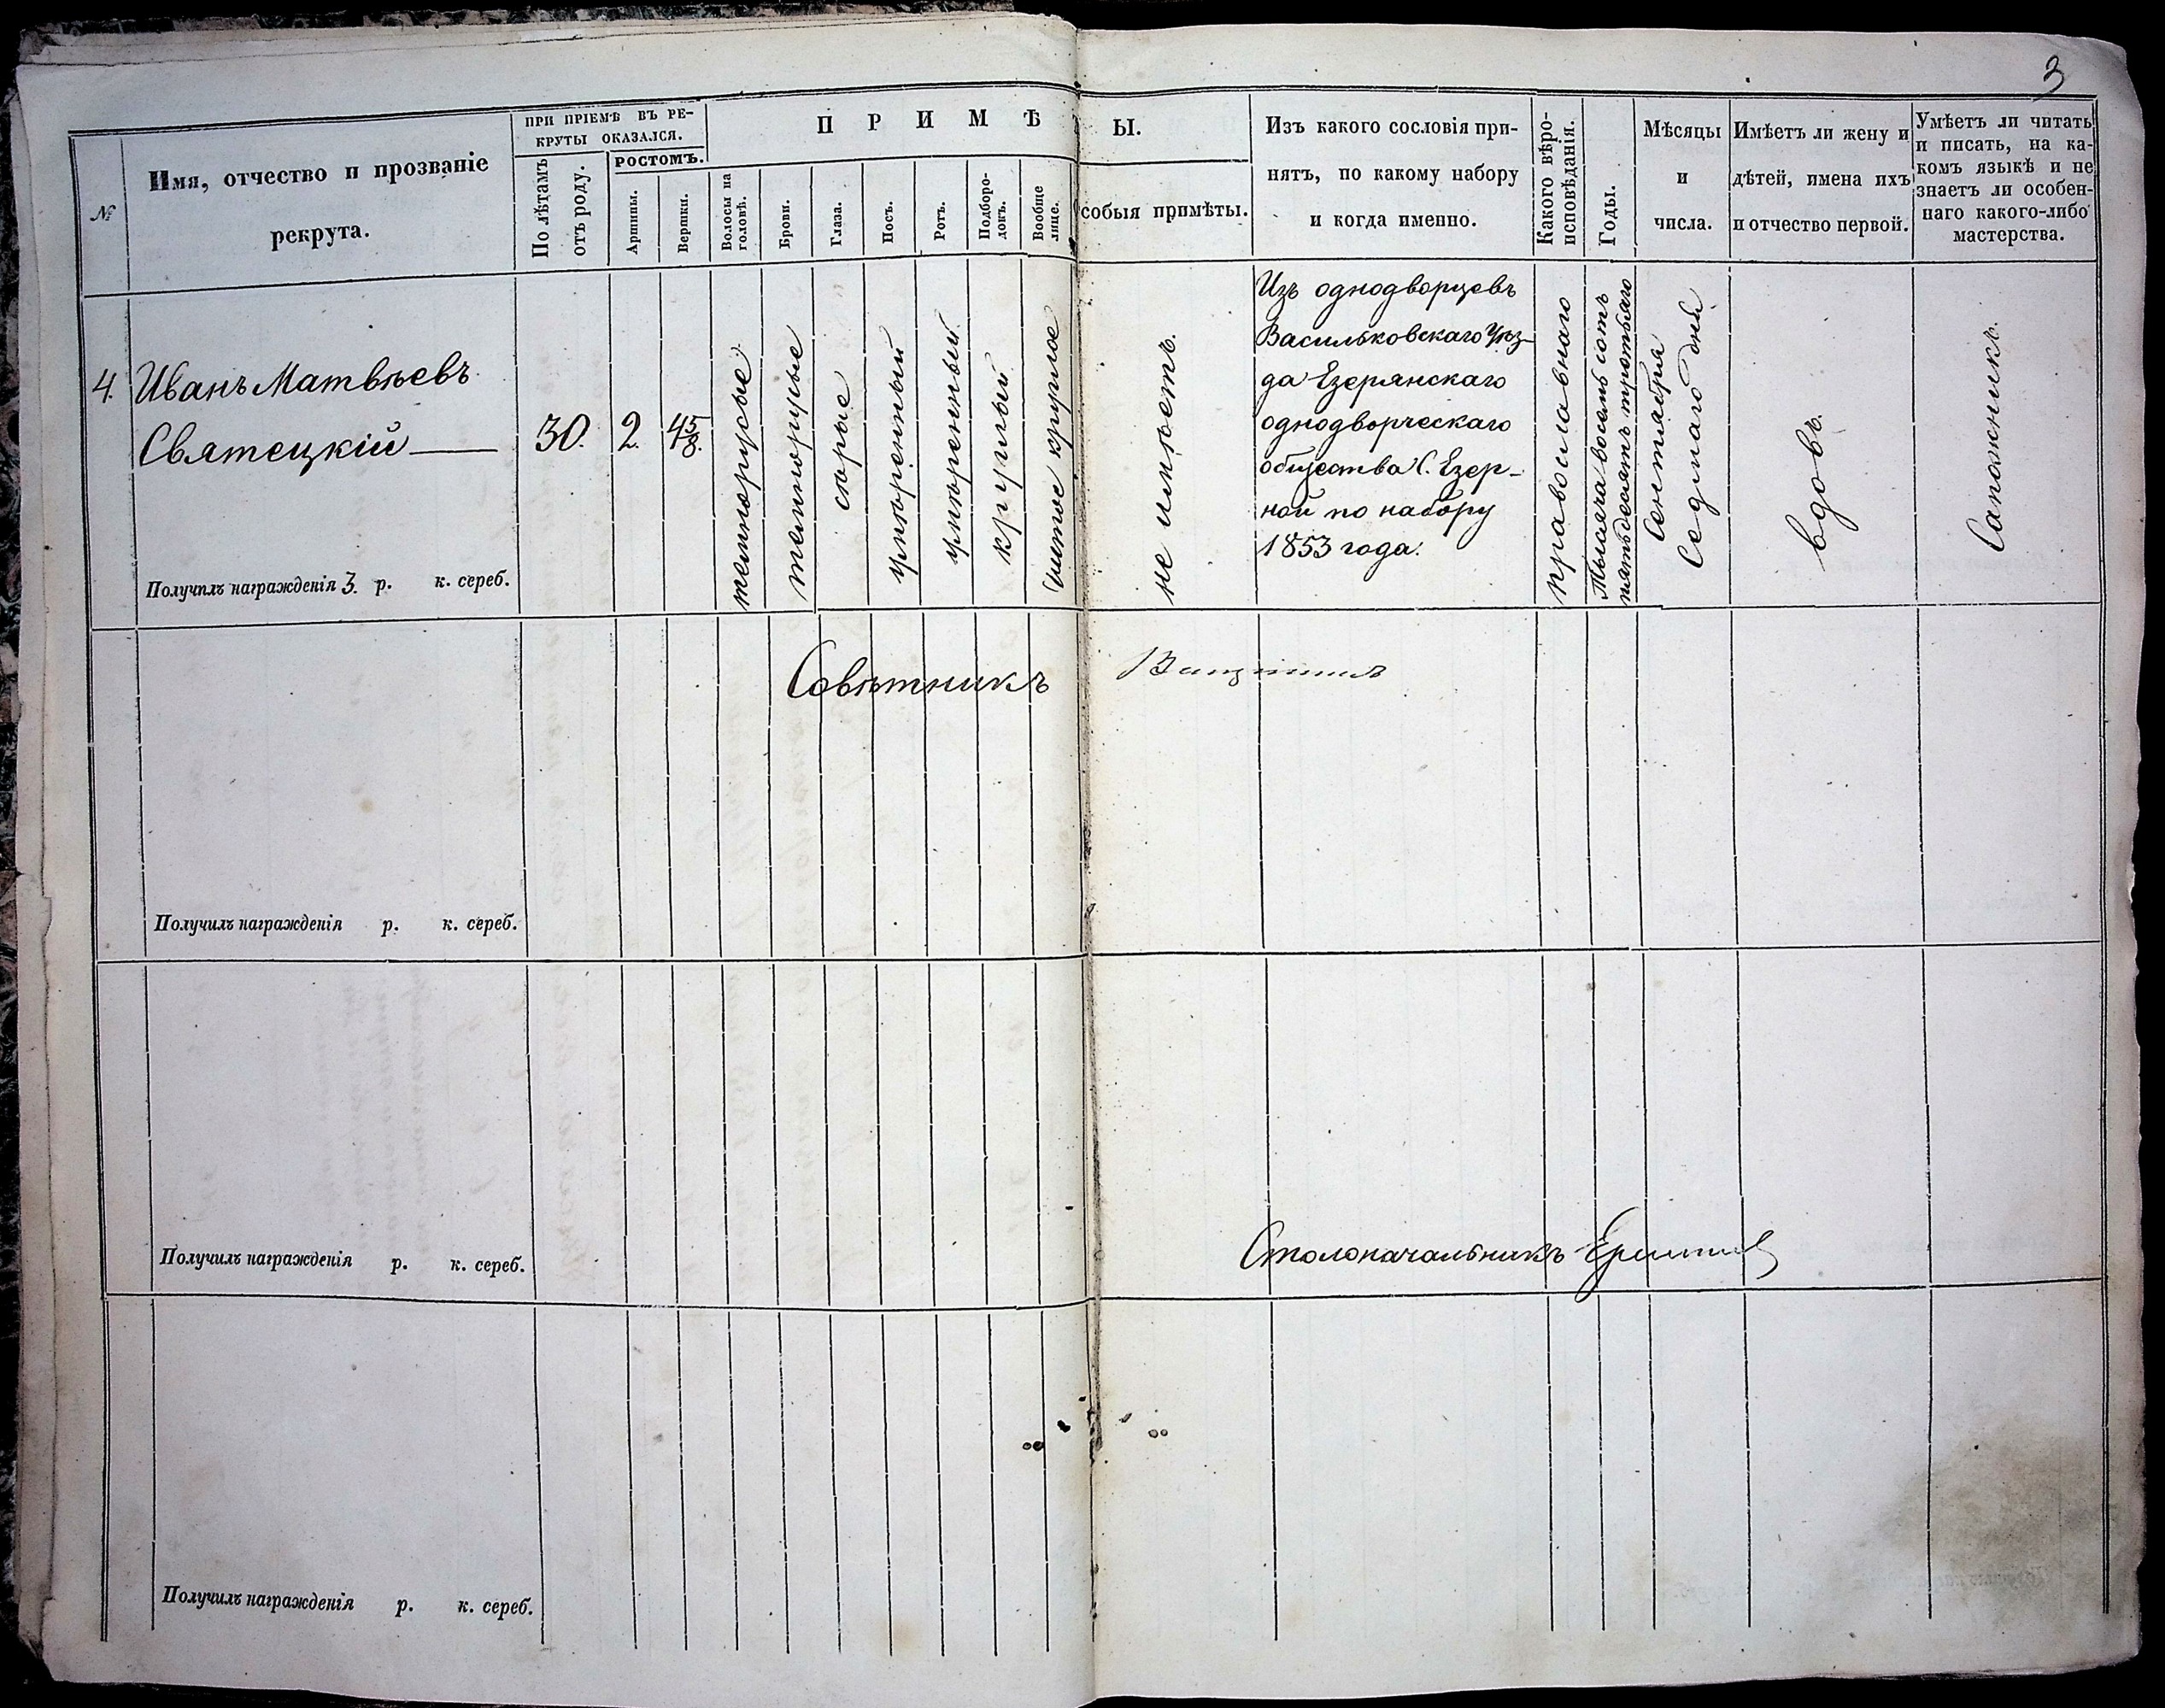 3
№
Имя, отчество и прозваніе
рекрута.
ПРИ ПРІЕМѢ ВЪ РЕ-
КРУТЫ ОКАЗАЛСЯ.
По лѣтамъ
отъ роду.
РОСТОМЪ.
Аршины.
Вершки.
ПРИМѢ
Ы.
Волосы на
головѣ.
Брови.
Глаза.
Носъ.
Ротъ.
Подборо-
докъ.
Вообще
лице.
собыя примѣты.
Изъ какого сословія при-
нятъ, по какому набору
и когда именно.
Какого вѣро-
исповѣданія.
Годы.
Мѣсяцы
и
числа.
Имѣетъ ли жену и
дѣтей, имена ихъ
и отчество первой.
Умѣетъ ли читать
и писать, на ка-
комъ языкѣ и не
знаетъ ли особен-
наго какого-либо
мастерства.
4.
Иванъ Матвѣевъ
Святецкій
Получилъ награжденія 3. р. к. сереб.
30.
2.
4 5/8.
темнорусые
темнорусые
сѣрые
умѣренный
умѣренный
круглый
чистое круглое
не имѣетъ.
Изъ однодворцевъ
Васильковскаго Уѣз-
да Езерянскаго
однодворческаго
общества С. Езер-
ной по набору
1853 года.
православнаго
Тысяча восемь сотъ
пятьдесятъ третьяго
Сентября
Седмаго дня
вдовъ.
Сапожникъ.
Совѣтникъ
Получилъ награжденія р. к. сереб.
Столоначальникъ
Получилъ награжденія р. к. сереб.
Получилъ награжденія р. к. сереб.